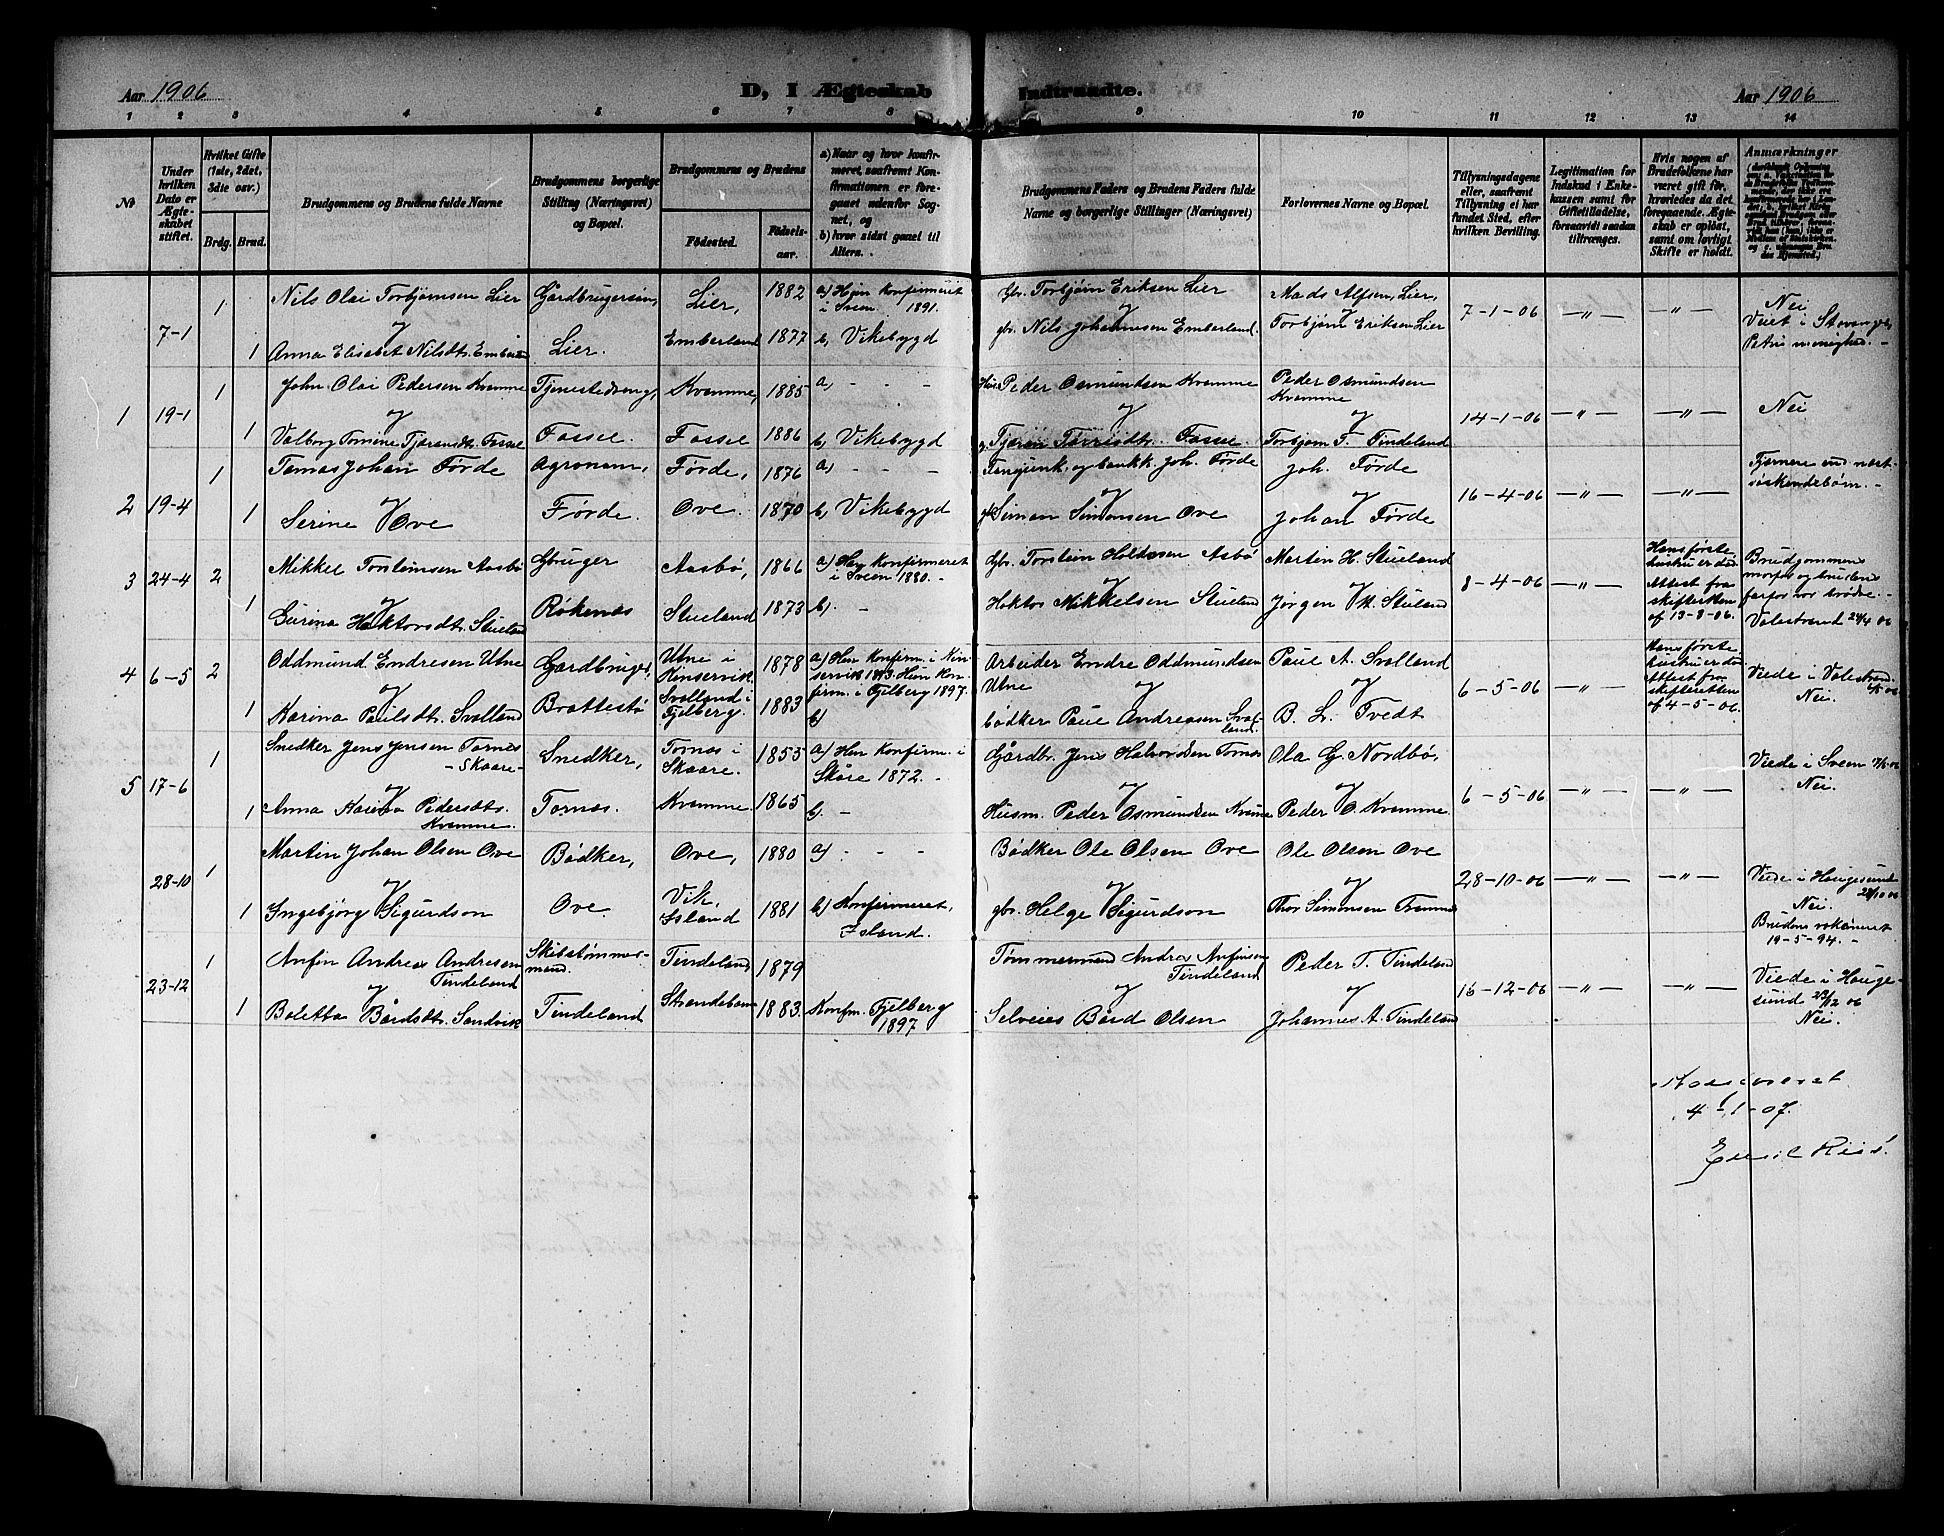 Aar 1906
D, I Ægteskab Indtraadte.
Aar 1906
1 2 3 4 5 6 7 8 9 10 11 12 13 14
№
Under hvilken Dato er Ægteskabet stiftet.
Hvilket Gifte (1ste, 2det, 3die osv.)
Brdg. Brud.
Brudgommens og Brudens fulde Navne
Brudgommens borgerlige Stilling (Næringsvei) og Bopæl.
Brudgommens og Brudens
Fødested.
Fødselsaar.
a) Naar og hvor konfirmeret, saafremt Konfirmationen er foregaaet udenfor Sognet, og
b) hvor sidst gaaet til Alters.
Brudgommens Faders og Brudens Faders fulde Navne og borgerlige Stillinger (Næringsvei)
Forlovernes Navne og Bopæl.
Tillysningsdagene eller, saafremt Tillysning ei har fundet Sted, efter hvilken Bevilling.
Legitimation for Indskud i Enkekassen samt for Giftetilladelse, forsaavidt saadan tiltrænges.
Hvis nogen af Brudefolkene har været gift før, hvorledes da det foregaaende Ægteskab er opløst, samt om lovligt Skifte er holdt.
Anmærkninger
7-1 1 Nils Olai Torbjørnsen Lier Gårdbrugersøn, Lier, 1882 a) Hun konfirmeret i Sveen 1891. Gbr. Torbjørn Eriksen Lier Mads Alfsen, Lier, 7-1-06 —"— —"— Nei
og
1 Anna Elisabet Nilsdt. Emberland Lier. Emberland 1877 b) Vikebygd gbr. Nils Johannesen Emberland. Torbjørn Eriksen Lier Viet i Stavanger Petri menighed. -
1 19-1 1 John Olai Pedersen Kvamme Tjenestedreng, Kvamme, 1885 a) - - - Husm. Peder Osmundsen Kvamme Peder Osmundsen Kvamme 14-1-06 —"— —"— Nei
og
1 Valborg Tomine Fosse Fosse. Fosse 1886 b) Vikebygd Fosse. Torbjørn T. Tindeland
2 19-4 1 Tomas Johan Førde Agronom, Førde, 1876 a) - - - Joh. Førde Joh. Førde 16-4-06 —"— —"— søskendebørn. -
og
1 Serine Ove Førde. Ove. 1870 b) Vikebygd Simon Simonsen Ove Johan Førde
3 24-4 2 Mikkel Torsteinsen Aasbø Gbruger Aasbø, 1866 a) Han konfirmeret i Sveen 1880. - Gbr. Torstein Aasbø Martin H. Stueland 8-4-06 —"— Hans første hustru er død Attest fra skifteretten af 13-3-06. Brudgommens morfar og brudens farfar var brødre. -
og
1 Gurina Hoktorsdt. Stueland Røkenes Stueland 1873 b) - Hoktor Mikkelsen Stueland Jørgen M. Stueland Valestrand 24/4 06
4 6-5 2 Oddmund Endresen Utne Gardbruger, Utne i Kinservik 1878 a) Han konfirm. i Kinservik 1893. Hun konfirm. i Fjelberg 1897. Arbeider Endre Oddmundsen Utne Paul A. Svolland 6-5-06 —"— Hans første hustru er død Attest fra skifteretten af 4-5-06. Viede i Valestrand 6/5 06
og
1 Karina Paulsdt. Svolland Brattestø Svolland i Fjelberg. 1883 b) bødker Paul Andreasen Svolland. B. L. Tvedt Nei.
5 17-6 1 Snedker Jens Jensen Tornes -Skaare- Snedker, Tornes i Skaare. 1855 a) Han konfirm. i Skåre 1872. - Gårdbr. Jens Halvordsen Tornes Ola G. Nordbø, 6-5-06 —"— —"— Viede i Sveen 17/6 06
og
1 Anna Karina Pedersdt. Kvamme. Tornes. Kvamme. 1865 b) - Husm. Peder Osmundsen Kvamme Peder O. Kvamme. Nei.
28-10 1 Martin Johan Olsen Ove Bødker, Ove, 1880 a) - - - Bødker Ole Olsen Ove Ole Olsen Ove 28-10-06 —"— —"— Viede i Haugesund 28/10 06
og
1 Ingebjørg Sigurdson Ove. Vik, Island 1881 b) Konfirmeret, Island. gbr. Helge Sigurdson Thor Simonsen Nei. Brudens vakcineret 19-5-94. -
23-12 1 Anfin Andreas Andresen Tindeland Skibstømmermand. Tindeland 1879 Tømmermand Andrea Anfinsen Tindeland Peder T. Tindeland 16-12-06 —"— —"— Viede i Haugesund 23/12 06
og
1 Boletta Bårdsdt. Sandvik Tindeland Strandebarm 1883. Konfm. Fjelberg 1897 Selveier Bård Olsen Johannes A. Tindeland Nei.
4-1-07.
Emil Riis